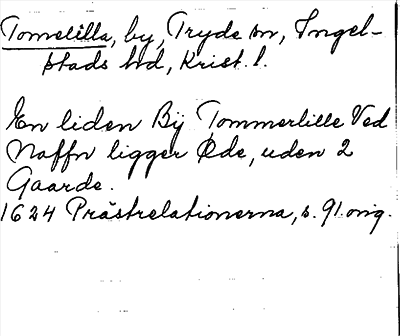 Tomelilla, by, Tryde sn, Ingel-
stads hd, Krist. l.
En liden Bÿ Tommerlille Ved
Naffn ligger Øde, uden 2
Gaarde.
1624 Prästrelationerna, s. 91 orig.